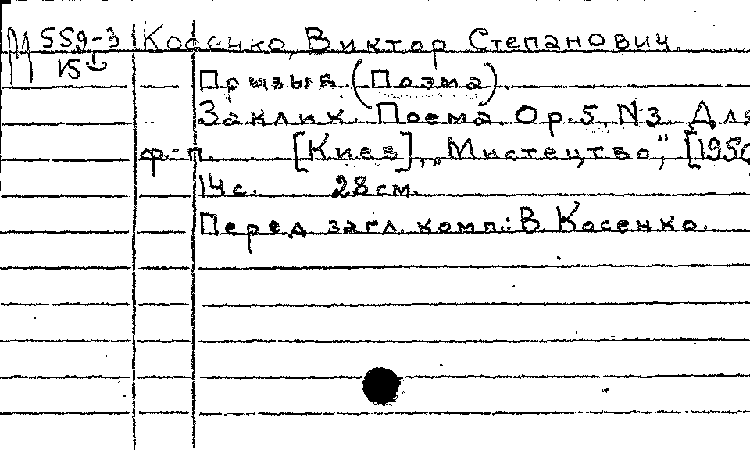 М 559-3 Косенко, Виктор Степанович.
15
Призыв (Поэма).
Заклик. Поема. Ор. 5, N3. Для
ф.-п. [Киев], „Мистецтво", [195
14 с. 28 см.
Перед загл. комп.: В. Косенко.